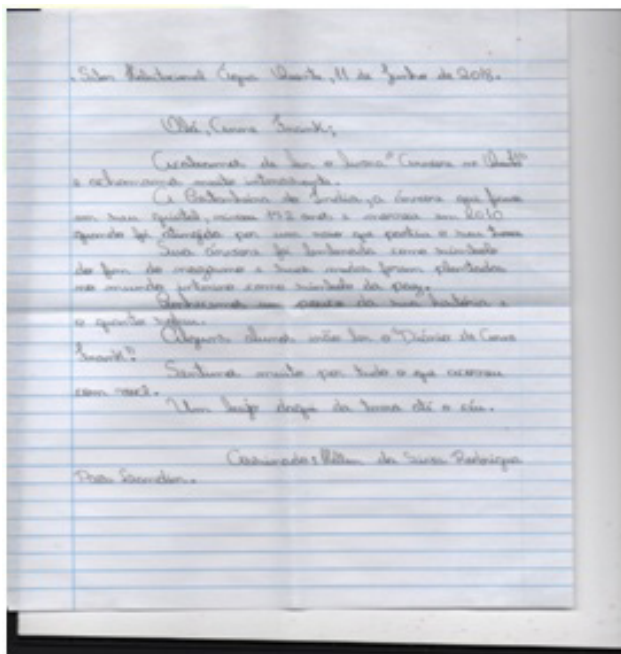 Setor Habitacional Água Quente, 11 de Junho de 2018.
Olá, Anne Frank;
Acabamos de ler o livro "A árvore no
e achamos muito interessante.
A Castanheira da Índia, a árvore que ficava
em seu quintal, viveu 172 anos e morreu em 2010
quando foi atingida por um raio que partiu o seu tronco
Sua árvore foi lembrada como símbolo
do fim do nazismo e suas mudas foram plantadas
no mundo inteiro como símbolo da paz.
Conhecemos um pouco da sua história e
o quanto sofreu.
Alguns alunos irão ler o "Diário de Anne
Frank".
Sentimos muito por tudo o que ocorreu
com você.
Um beijo daqui da terra até o céu.
Assinado: da Silva Rodrigues